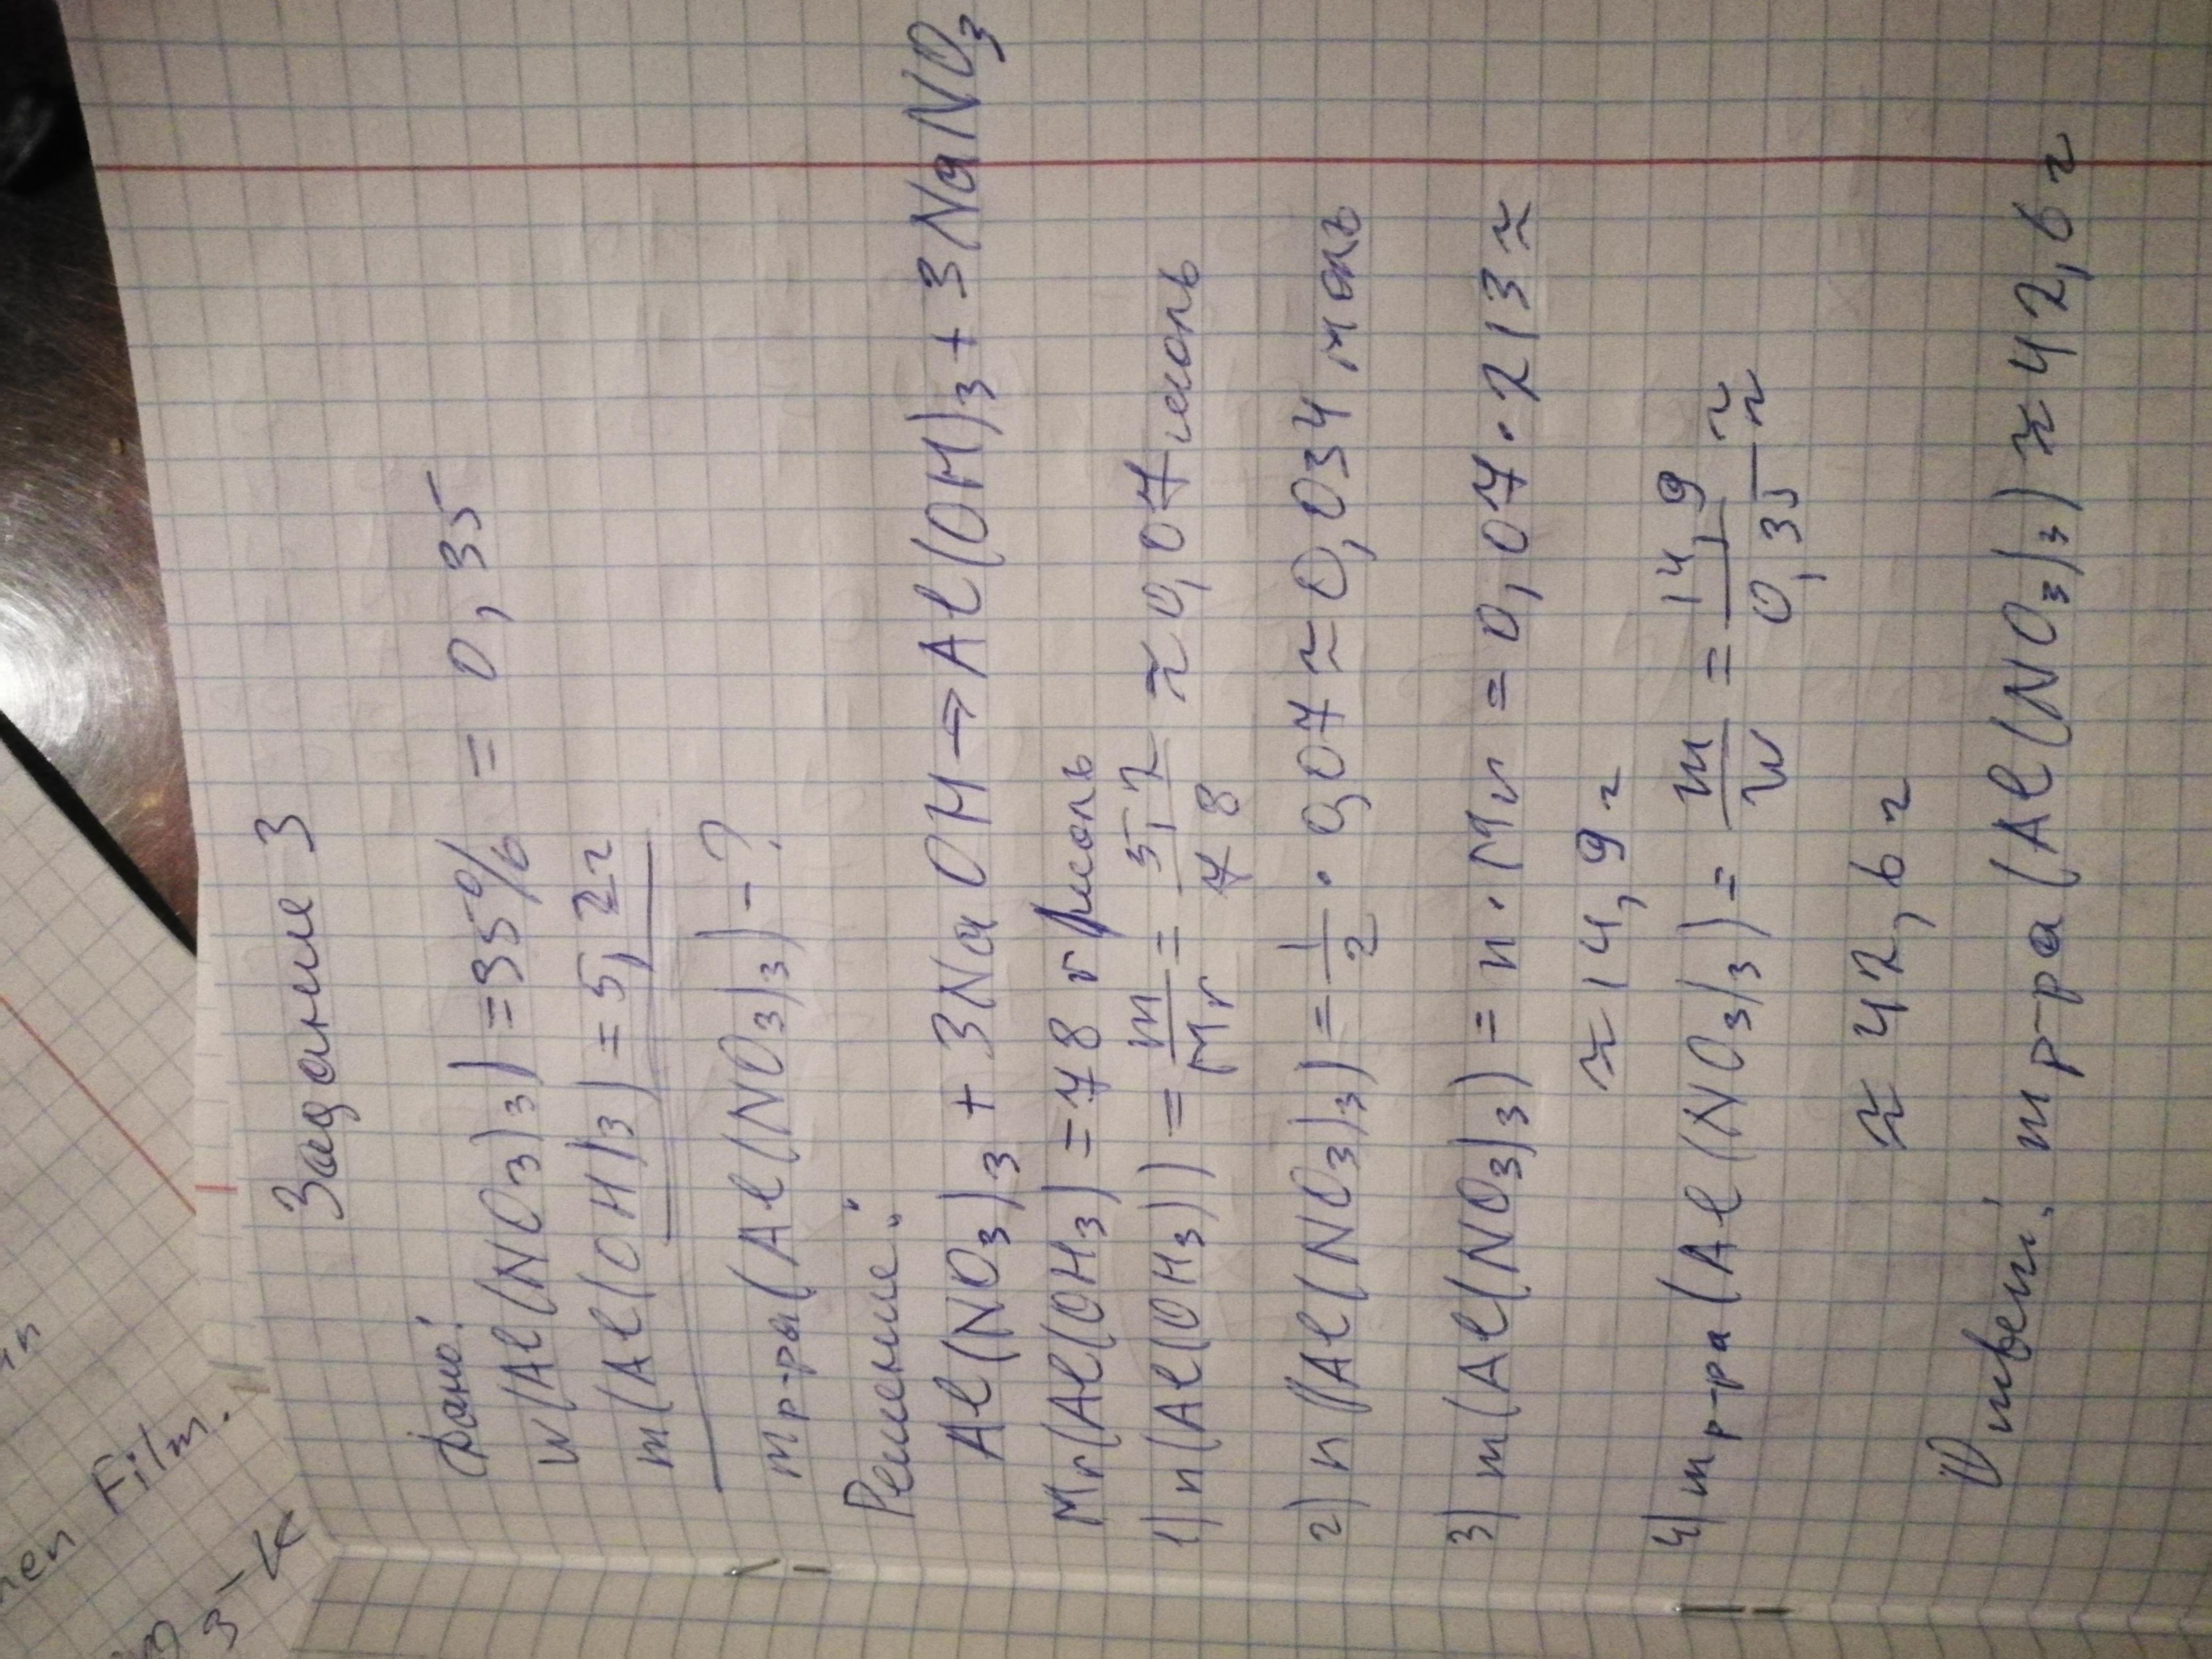 Задание 3
Дано:
W(Al(NO3)3) = 35% = 0,35
m(Al(OH)3) = 5,2г
mр-ра(Al(NO3)3) - ?
Решение:
Al(NO3)3 + 3NaOH → Al(OH)3 + 3NaNO3
Mr(Al(OH3) = 78 г/моль
1) n(Al(OH3)) = m/Mr = 5,2/78 ≈ 0,07 моль
2) n(Al(NO3)3) = 1/2 · 0,07 ≈ 0,034 моль
3) m(Al(NO3)3) = n · Mr = 0,07 · 213 ≈
≈ 14,9 г
4) mр-ра(Al(NO3)3) = m/W = 14,9/0,35 ≈
≈ 42,6 г
Ответ: mр-ра(Al(NO3)3) ≈ 42,6 г
Film.
3-K